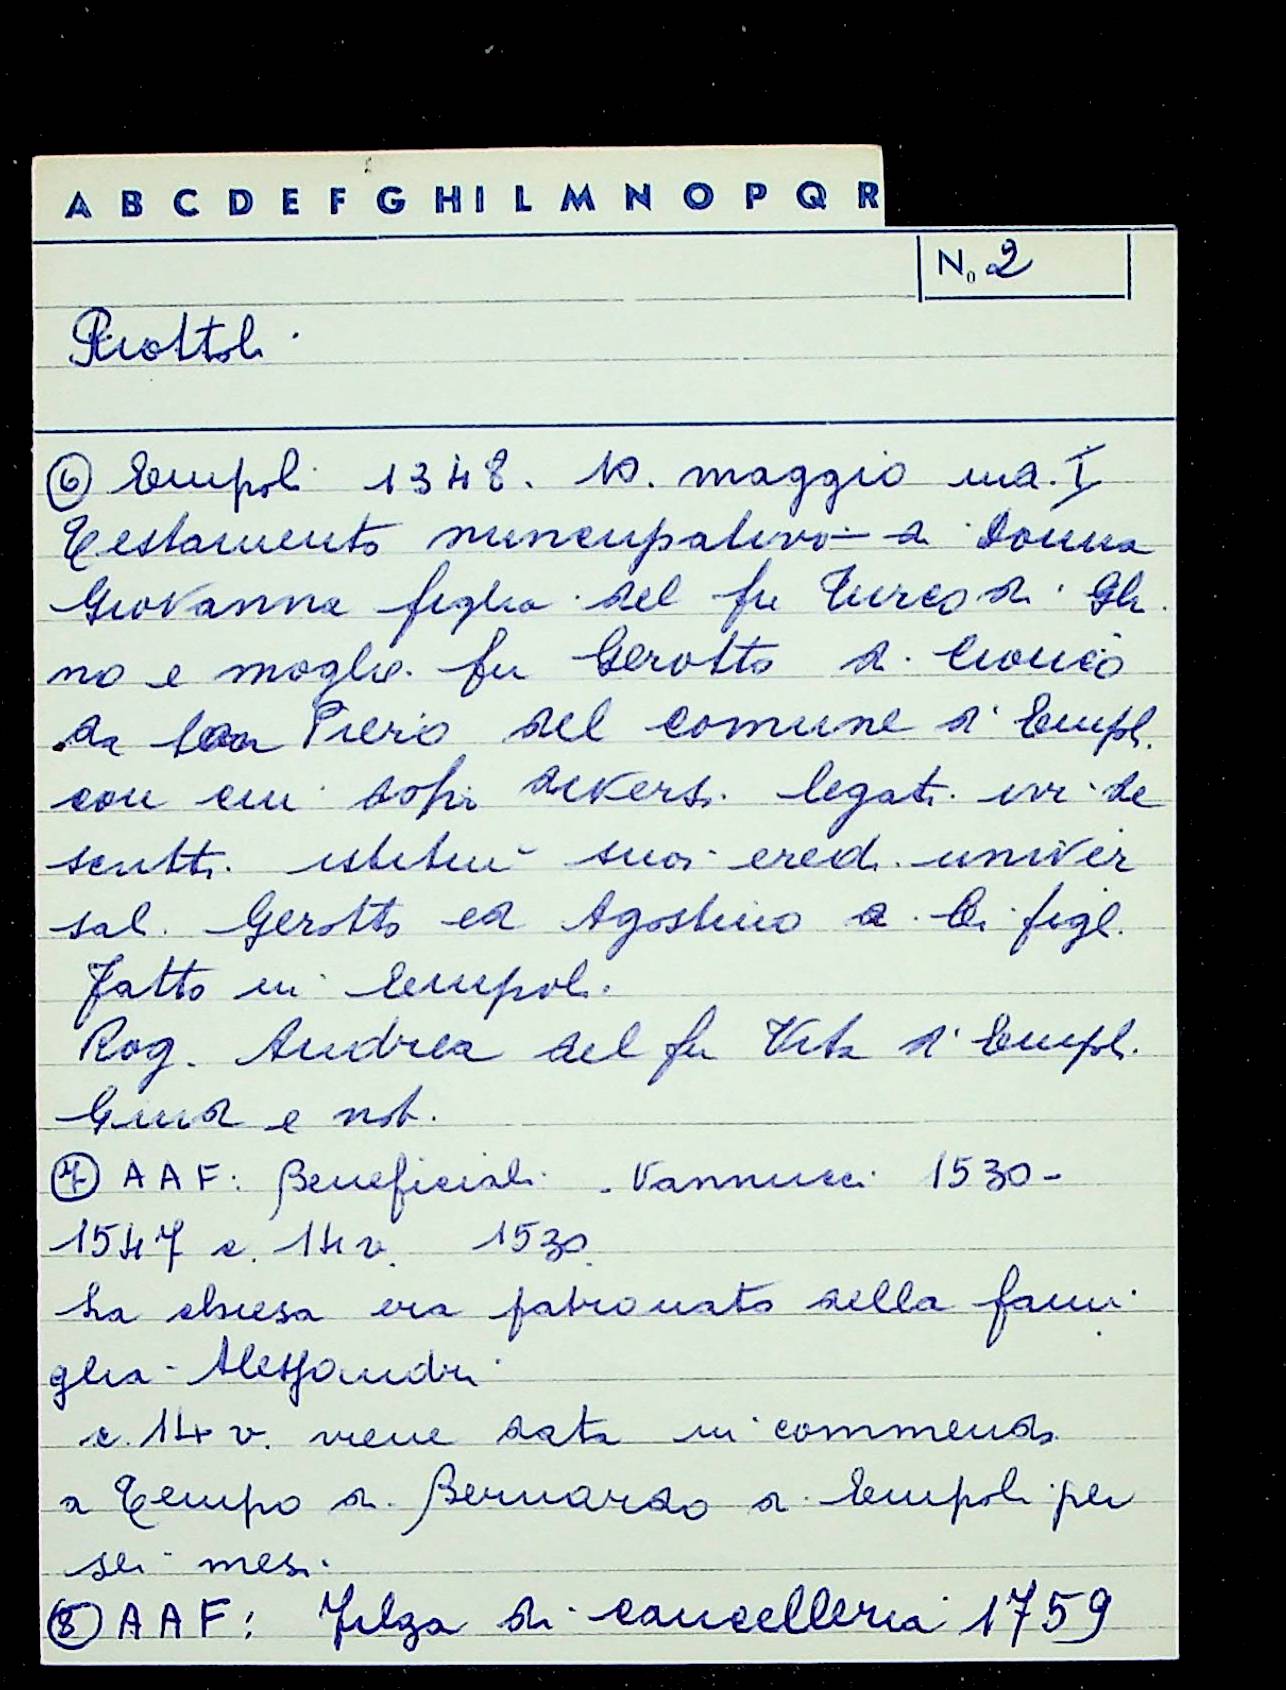 A B C D E F G H I L M N O P Q R
No 2
Riottoli
⑥ Empoli 1348. 10. maggio ind. I
Testamento nuncupativo di Donna
Giovanna figlia del fu Turco di Ghi
no e moglie fu Gerotto di Cionco
da San Piero del comune d'Empoli
con cui dopo diversi legati ivi de
scritti istituì suoi eredi univer
sali Gerotto ed Agostino di lei figli.
Fatto in Empoli.
Rog. Andrea del fu Vita d'Empoli
Giud e not.
⑦ AAF: Beneficiali. Vannucci 1530-
1547 c. 14 v. 1530.
La chiesa era patronato della fami
glia Alessandri
c. 14 v. viene data in commenda
a Tempo di Bernardo di Empoli per
sei mesi.
⑧ AAF: Filza di cancelleria 1759